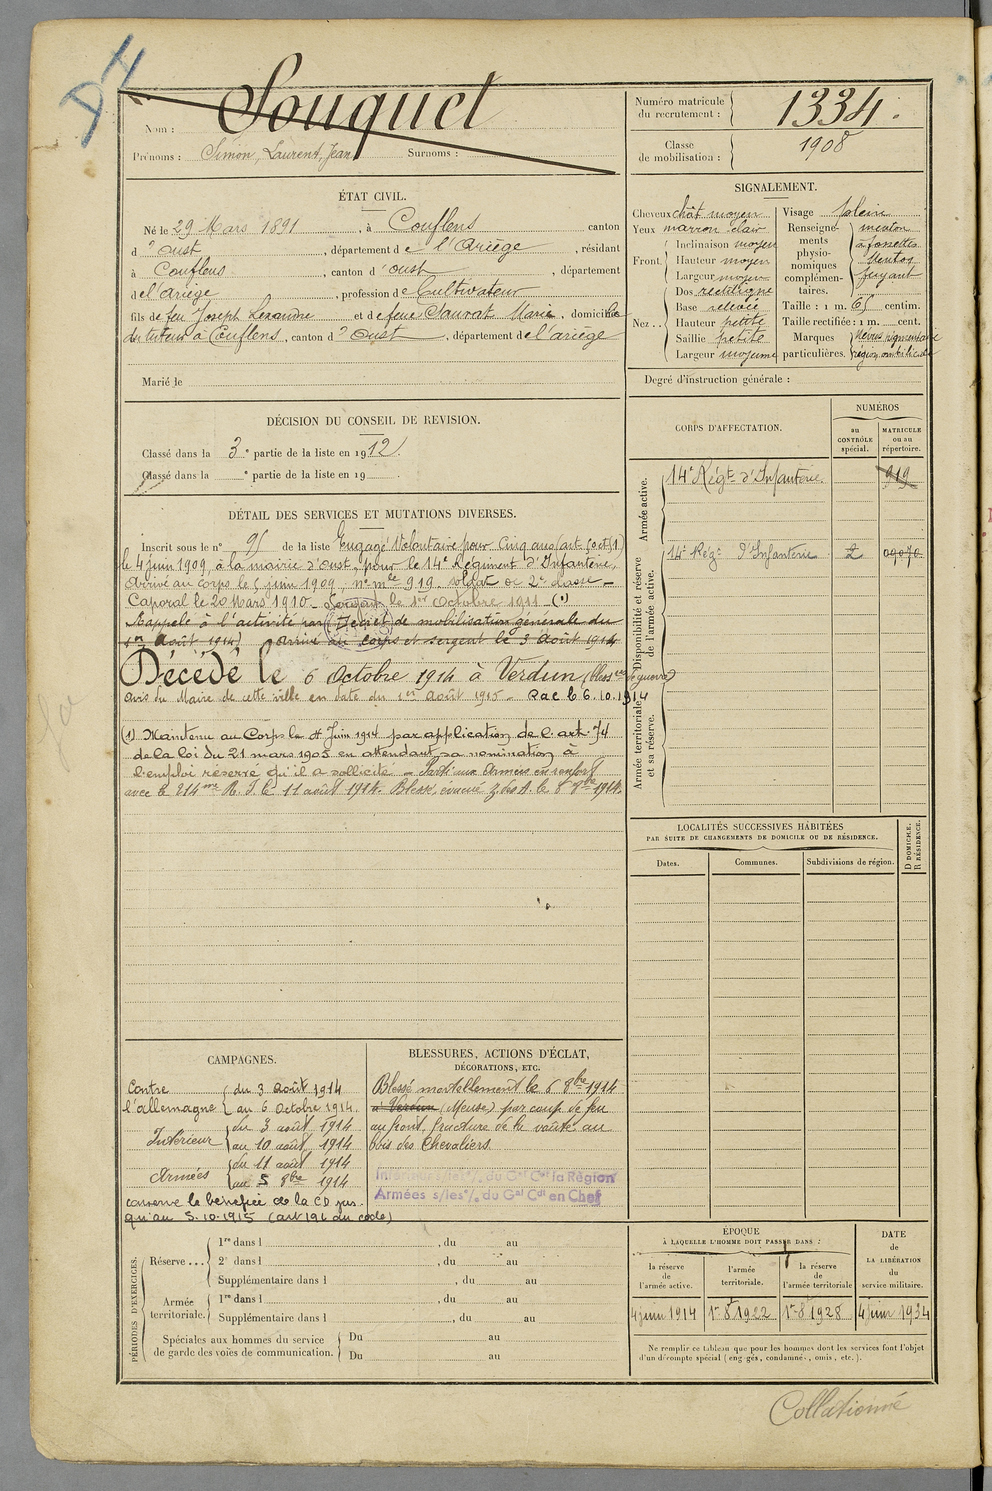 D4
Nom : Souquet
Prénoms : Simon, Laurent, Jean Surnoms :
Numéro matricule du recrutement : 1334.
Classe de mobilisation : 1908
ÉTAT CIVIL.
Né le 29 Mars 1891, à Couflens canton
d'Oust, département de l'Ariège, résidant
à Couflens, canton d'oust, département
de l'ariège, profession de Cultivateur
fils de feu Joseph Lexandre et de feue Sauvat Marie, domicilié
du tuteur à Couflens, canton d'Oust, département de l'ariège
Marié le
SIGNALEMENT.
Cheveux chât moyen
Yeux marron clair
Front Inclinaison moyen
Hauteur moyen
Largeur moyen
Nez Dos rectiligne
Base relevée
Hauteur petite
Saillie petite
Largeur moyenne
Visage plein
Renseignements physionomiques complémentaires. menton à fossette Menton fuyant
Taille : 1 m. 65 centim.
Taille rectifiée : 1 m. cent.
Marques particulières. Nævus pigmentaire région ombilicale
Degré d'instruction générale :
DÉCISION DU CONSEIL DE REVISION.
Classé dans la 3e partie de la liste en 1912.
Classé dans la e partie de la liste en 19
DÉTAIL DES SERVICES ET MUTATIONS DIVERSES.
Inscrit sous le n° 95 de la liste Engagé Volontaire pour Cinq ans (art. 50 et 51)
le 4 juin 1909, à la mairie d'Oust, pour le 14e Régiment d'Infanterie,
Arrivé au corps le 5 juin 1909, n° mle 919. soldat de 2e classe –
Caporal le 20 Mars 1910 – Sergent le 1er Octobre 1911 – (1)
Rappelé à l'activité par Décret de mobilisation générale du
1er Août 1914) arrivé au corps et sergent le 3 Août 1914
Décédé le 6 Octobre 1914 à Verdun (bless res de guerre)
avis du Maire de cette ville en date du 1er Août 1915 – Rac le 6.10.1914
(1) Maintenu au Corps le 4 Juin 1914 par application de l'art. 74
de la loi du 21 mars 1905 en attendant sa nomination à
l'emploi réservé qu'il a sollicité – Parti aux Armées en renfort
avec le 214me R. I. le 11 août 1914. Blessé, évacué z. des A. le 8bre 1914.
CORPS D'AFFECTATION.
NUMÉROS
au CONTRÔLE spécial.
MATRICULE ou au répertoire.
Armée active.
14e Régt d'Infanterie. 919
Disponibilité et réserve de l'armée active.
14e Régt d'Infanterie 09070
Armée territoriale et sa réserve.
LOCALITÉS SUCCESSIVES HABITÉES
PAR SUITE DE CHANGEMENTS DE DOMICILE OU DE RÉSIDENCE.
Dates.
Communes.
Subdivisions de région.
D DOMICILE.
R RÉSIDENCE.
CAMPAGNES.
Contre l'allemagne { du 3 Août 1914
au 6 Octobre 1914.
Intérieur du 3 août 1914
au 10 août 1914
Armées du 11 août 1914
au 5 8bre 1914
conserve le bénéfice de la CD jus-
qu'au 5.10.1915 (art 196 du code)
BLESSURES, ACTIONS D'ÉCLAT,
DÉCORATIONS, ETC.
Blessé mortellement le 6 8bre 1914
à Verdun (Meuse) par coup de feu
au front, fracture de la voûte au
bois des Chevaliers.
Intérieur s/les o/. du Gal Cdt la Région
Armées s/les o/. du Gal Cdt en Chef
PÉRIODES D'EXERCICES.
Réserve ... 1re dans l , du au
2e dans l , du au
Supplémentaire dans l , du au
Armée territoriale. 1re dans l , du au
Supplémentaire dans l , du au
Spéciales aux hommes du service de garde des voies de communication. Du au
Du au
ÉPOQUE
À LAQUELLE L'HOMME DOIT PASSER DANS :
la réserve de l'armée active.
l'armée territoriale.
la réserve de l'armée territoriale
DATE de LA LIBÉRATION du service militaire.
4 juin 1914
1er 8bre 1922
1er 8bre 1928
4 juin 1934
Ne remplir ce tableau que pour les hommes dont les services font l'objet
d'un décompte spécial (engagés, condamnés, omis, etc.).
Collationné